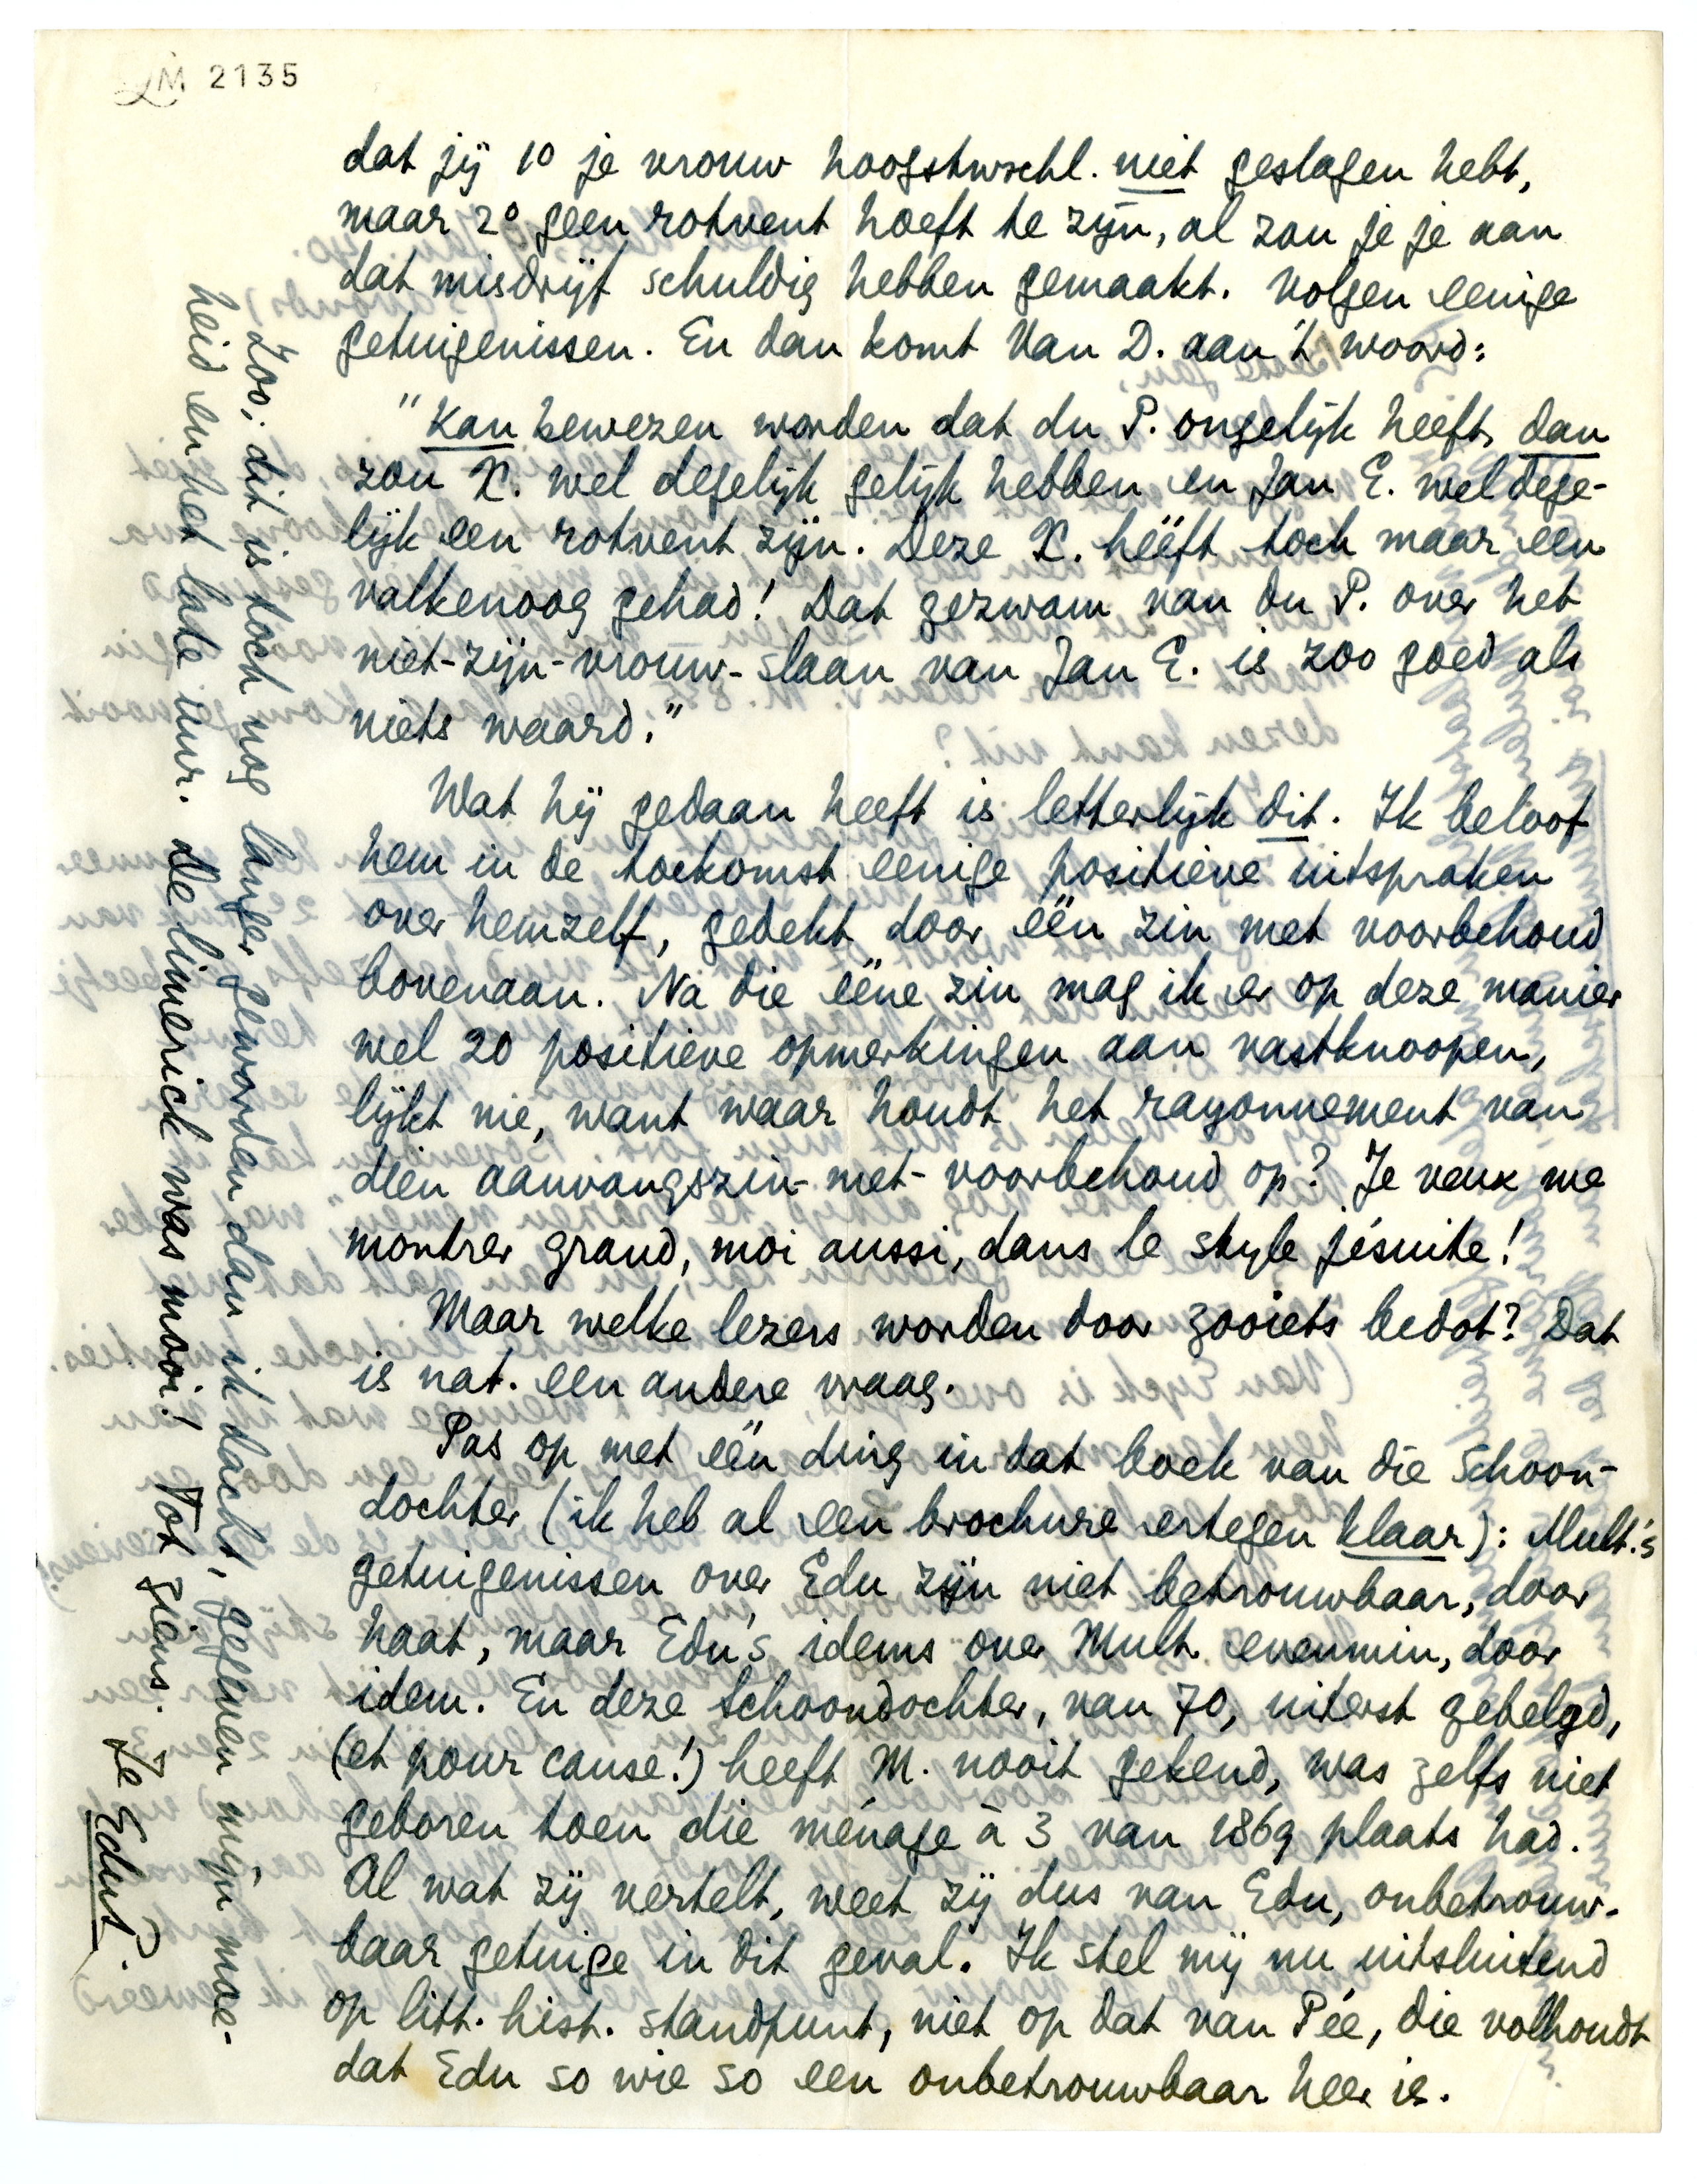 LM 2135
dat jij 1º je vrouw hoogstwschl. niet geslagen hebt,
maar 2º geen rotvent hoeft te zijn, al zou je je aan
dat misdrijf schuldig hebben gemaakt. Volgen eenige
getuigenissen. En dan komt Van D. aan 't woord:
"Kan bewezen worden dat du P. ongelijk heeft, dan
zou X. wel degelijk gelijk hebben en Jan E. wel dege-
lijk een rotvent zijn. Deze X. hééft toch maar een
valkenoog gehad! Dat gezwam van du P. over het
niet-zijn-vrouw-slaan van Jan E. is zoo goed als
niets waard."
Wat hij gedaan heeft is letterlijk dit. Ik beloof
hem in de toekomst eenige positieve uitspraken
over hemzelf, gedekt door één zin met voorbehoud
bovenaan. Na die ééne zin mag ik er op deze manier
wel 20 positieve opmerkingen aan vastknoopen,
lijkt me, want waar houdt het rayonnement van
dien aanvangszin-met-voorbehoud op? Je veux me
montrer grand, moi aussi, dans le style jésuite!
Maar welke lezers worden door zooiets bedot? Dat
is nat. een andere vraag.
Pas op met één ding in dat boek van die Schoon-
dochter (ik heb al een brochure ertegen klaar): Mult.'s
getuigenissen over Edu zijn niet betrouwbaar, door
haat, maar Edu's idems over Mult. evenmin, door
idem. En deze Schoondochter, van 70, uiterst gebelgd,
(et pour cause!) heeft M. nooit gekend, was zelfs niet
geboren toen die ménage à 3 van 1869 plaats had.
Al wat zij vertelt, weet zij dus van Edu, onbetrouw-
baar getuige in dit geval. Ik stel mij nu uitsluitend
op litt. hist. standpunt, niet op dat van Pée, die volhoudt
dat Edu so wie so een onbetrouwbaar heer is.
Zoo, dit is toch nog langer geworden dan ik dacht, gegeven mijn moe-
heid en het late uur. De limerick was mooi! Tot ziens. Je EduP.